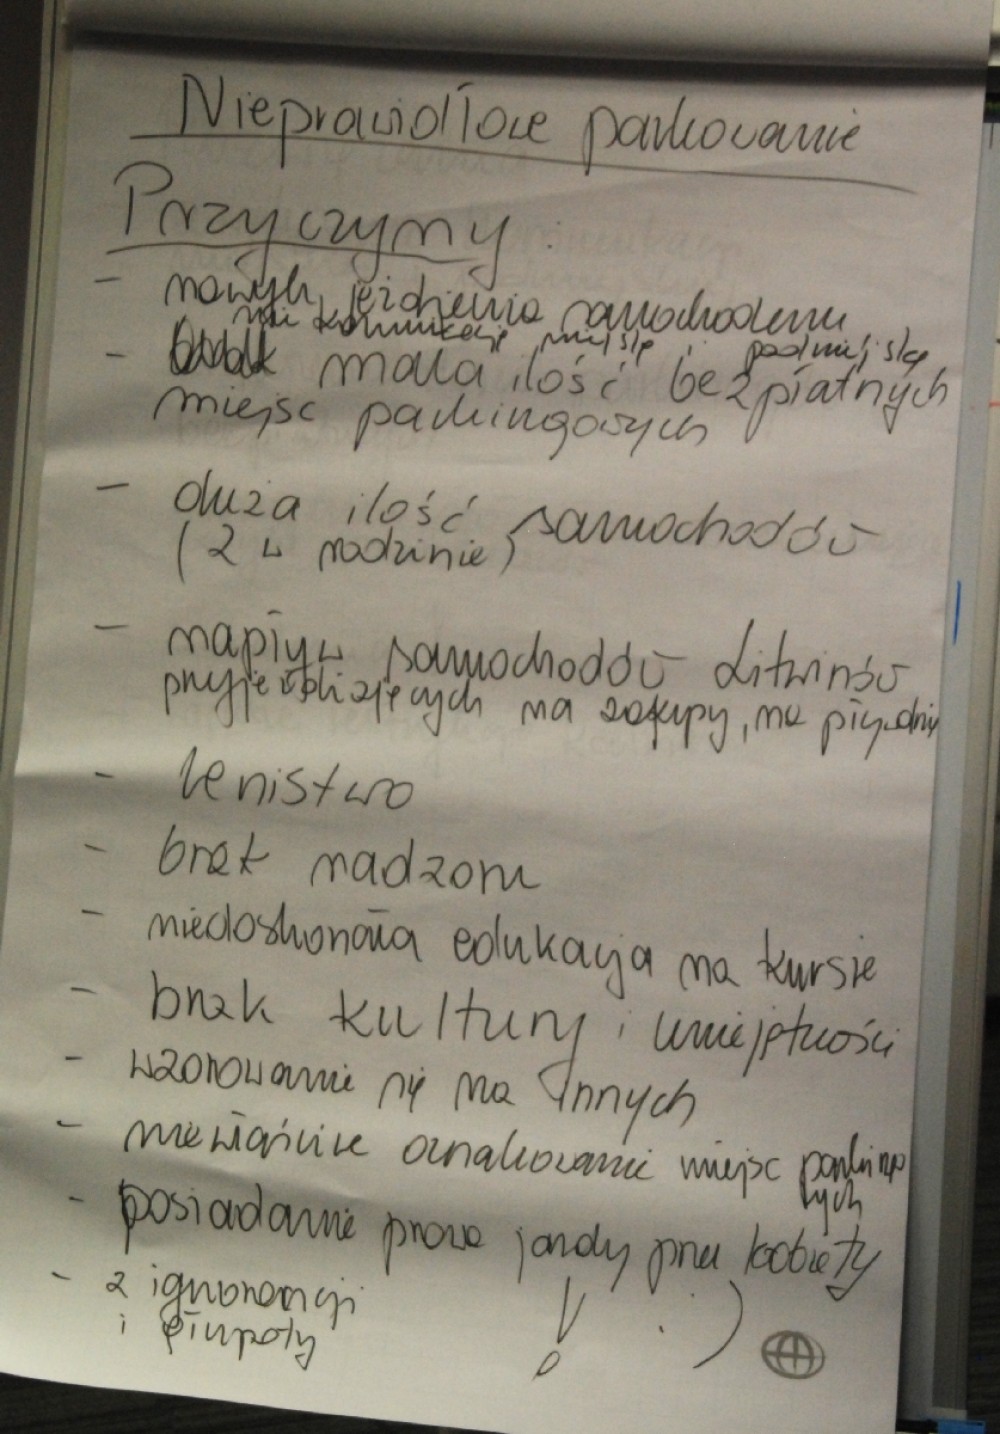 Nieprawidłowe parkowanie
Przyczyny:
- nawyk jeżdżenia samochodem
nie komunikacją miejską i podmiejską
- mała ilość bezpłatnych
miejsc parkingowych
- duża ilość samochodów
(2 w rodzinie)
- napływ samochodów Litwinów
przyjeżdżających na zakupy, na
- lenistwo
- brak nadzoru
- niedoskonała edukacja na kursie
- brak kultury i umiejętności
- wzorowanie się na innych
- niewłaściwe oznakowanie miejsc parkingo
wych
- posiadanie prawa jazdy przez kobiety
- z ignorancji ! :)
i głupoty